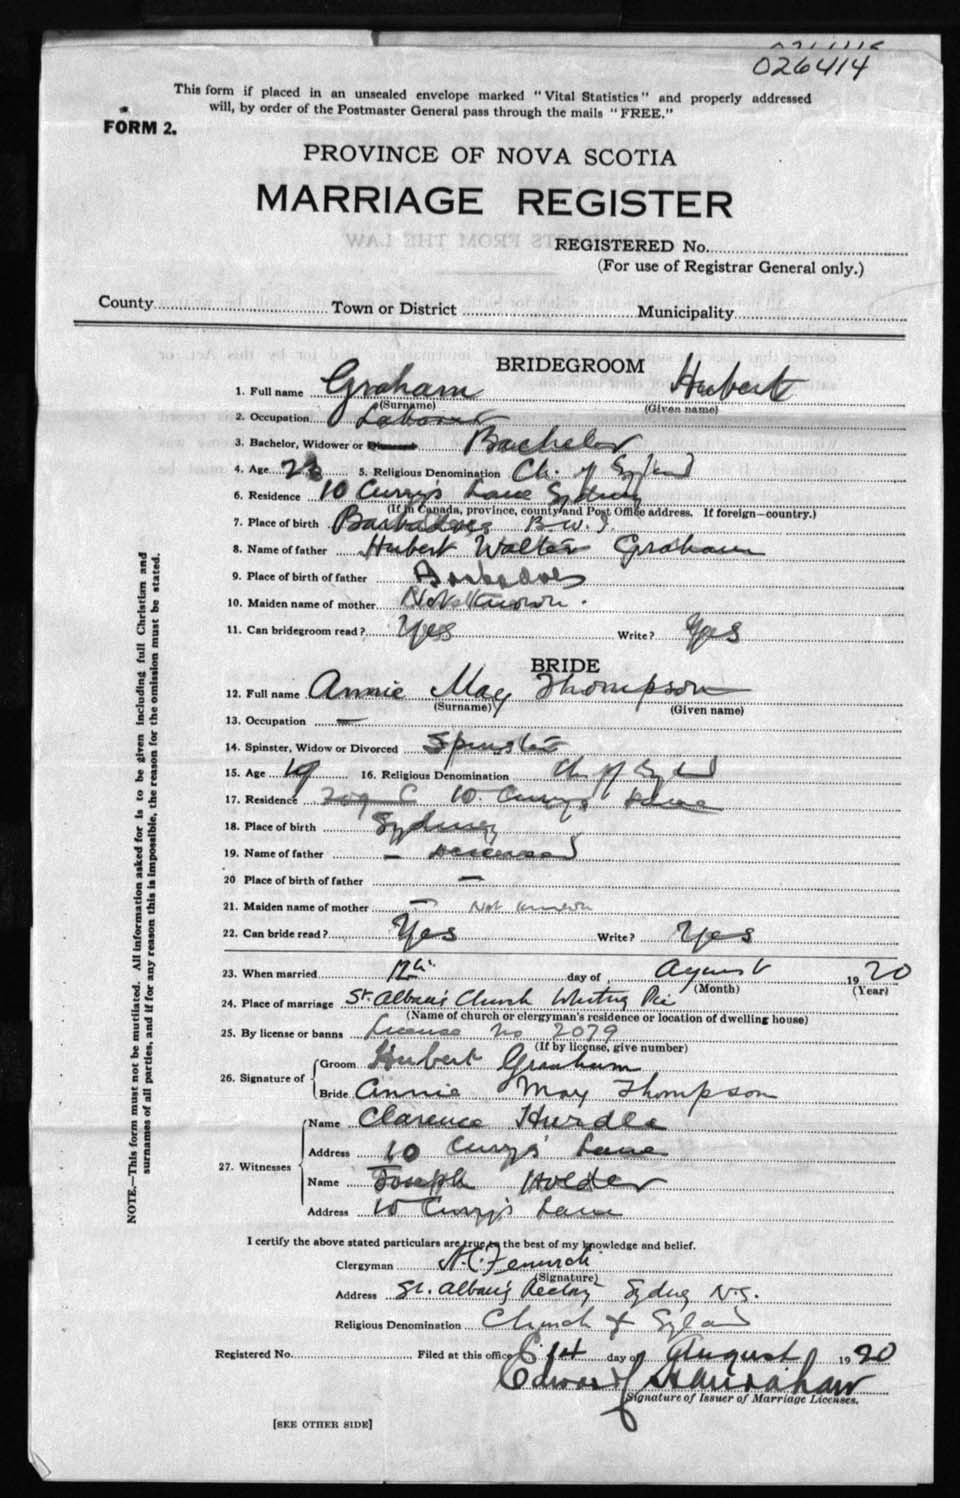 026414
This form if placed in an unsealed envelope marked "Vital Statistics" and properly addressed
will, by order of the Postmaster General pass through the mails "FREE."
FORM 2.
PROVINCE OF NOVA SCOTIA
MARRIAGE REGISTER
REGISTERED No.
(For use of Registrar General only.)
County Town or District Municipality
BRIDEGROOM
1. Full name Graham Hubert
(Surname) (Given name)
2. Occupation Laborer
3. Bachelor, Widower or Divorced Bachelor
4. Age 23 5. Religious Denomination Ch. of England
6. Residence 10 Curry's Lane Sydney
(If in Canada, province, county and Post Office address. If foreign—country.)
7. Place of birth Barbadoes B.W.I.
8. Name of father Hubert Walter Graham
9. Place of birth of father Barbadoes
10. Maiden name of mother Not Known.
11. Can bridegroom read? Yes Write? Yes
BRIDE
12. Full name Annie May Thompson
(Surname) (Given name)
13. Occupation —
14. Spinster, Widow or Divorced Spinster
15. Age 19 16. Religious Denomination Ch. of England
17. Residence 10 Curry's Lane
18. Place of birth Sydney
19. Name of father — deceased
20 Place of birth of father —
21. Maiden name of mother — Not known
22. Can bride read? Yes Write? Yes
23. When married 12th day of August 1920
(Month) (Year)
24. Place of marriage St. Alban's Church Whitney Pier
(Name of church or clergyman's residence or location of dwelling house)
25. By license or banns License No 2079
(If by license, give number)
26. Signature of Groom Hubert Graham
Bride Annie May Thompson
27. Witnesses Name Clarence Hurdle
Address 10 Curry's Lane
Name Joseph Holder
Address 10 Curry's Lane
I certify the above stated particulars are true to the best of my knowledge and belief.
Clergyman
(Signature)
Address St. Alban's Rectory Sydney N.S.
Religious Denomination Church of England
Registered No. Filed at this office day of August 1920
Signature of Issuer of Marriage Licenses.
[SEE OTHER SIDE]
NOTE.—This form must not be mutilated. All information asked for is to be given including full Christian and
surnames of all parties, and if for any reason this is impossible, the reason for the omission must be stated.